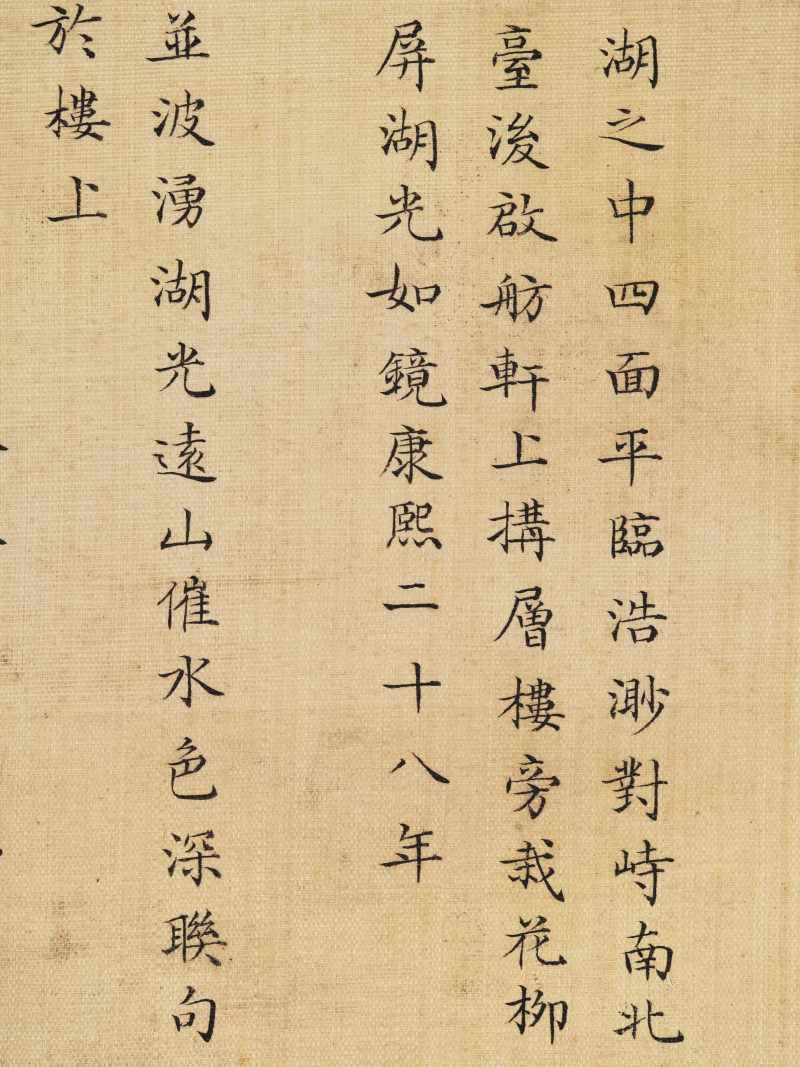 湖之中四面平臨浩渺對峙南北
臺後啟舫軒上搆層樓旁栽花柳
屏湖光如鏡康熙二十八年
並波湧湖光遠山催水色深聯句
於樓上